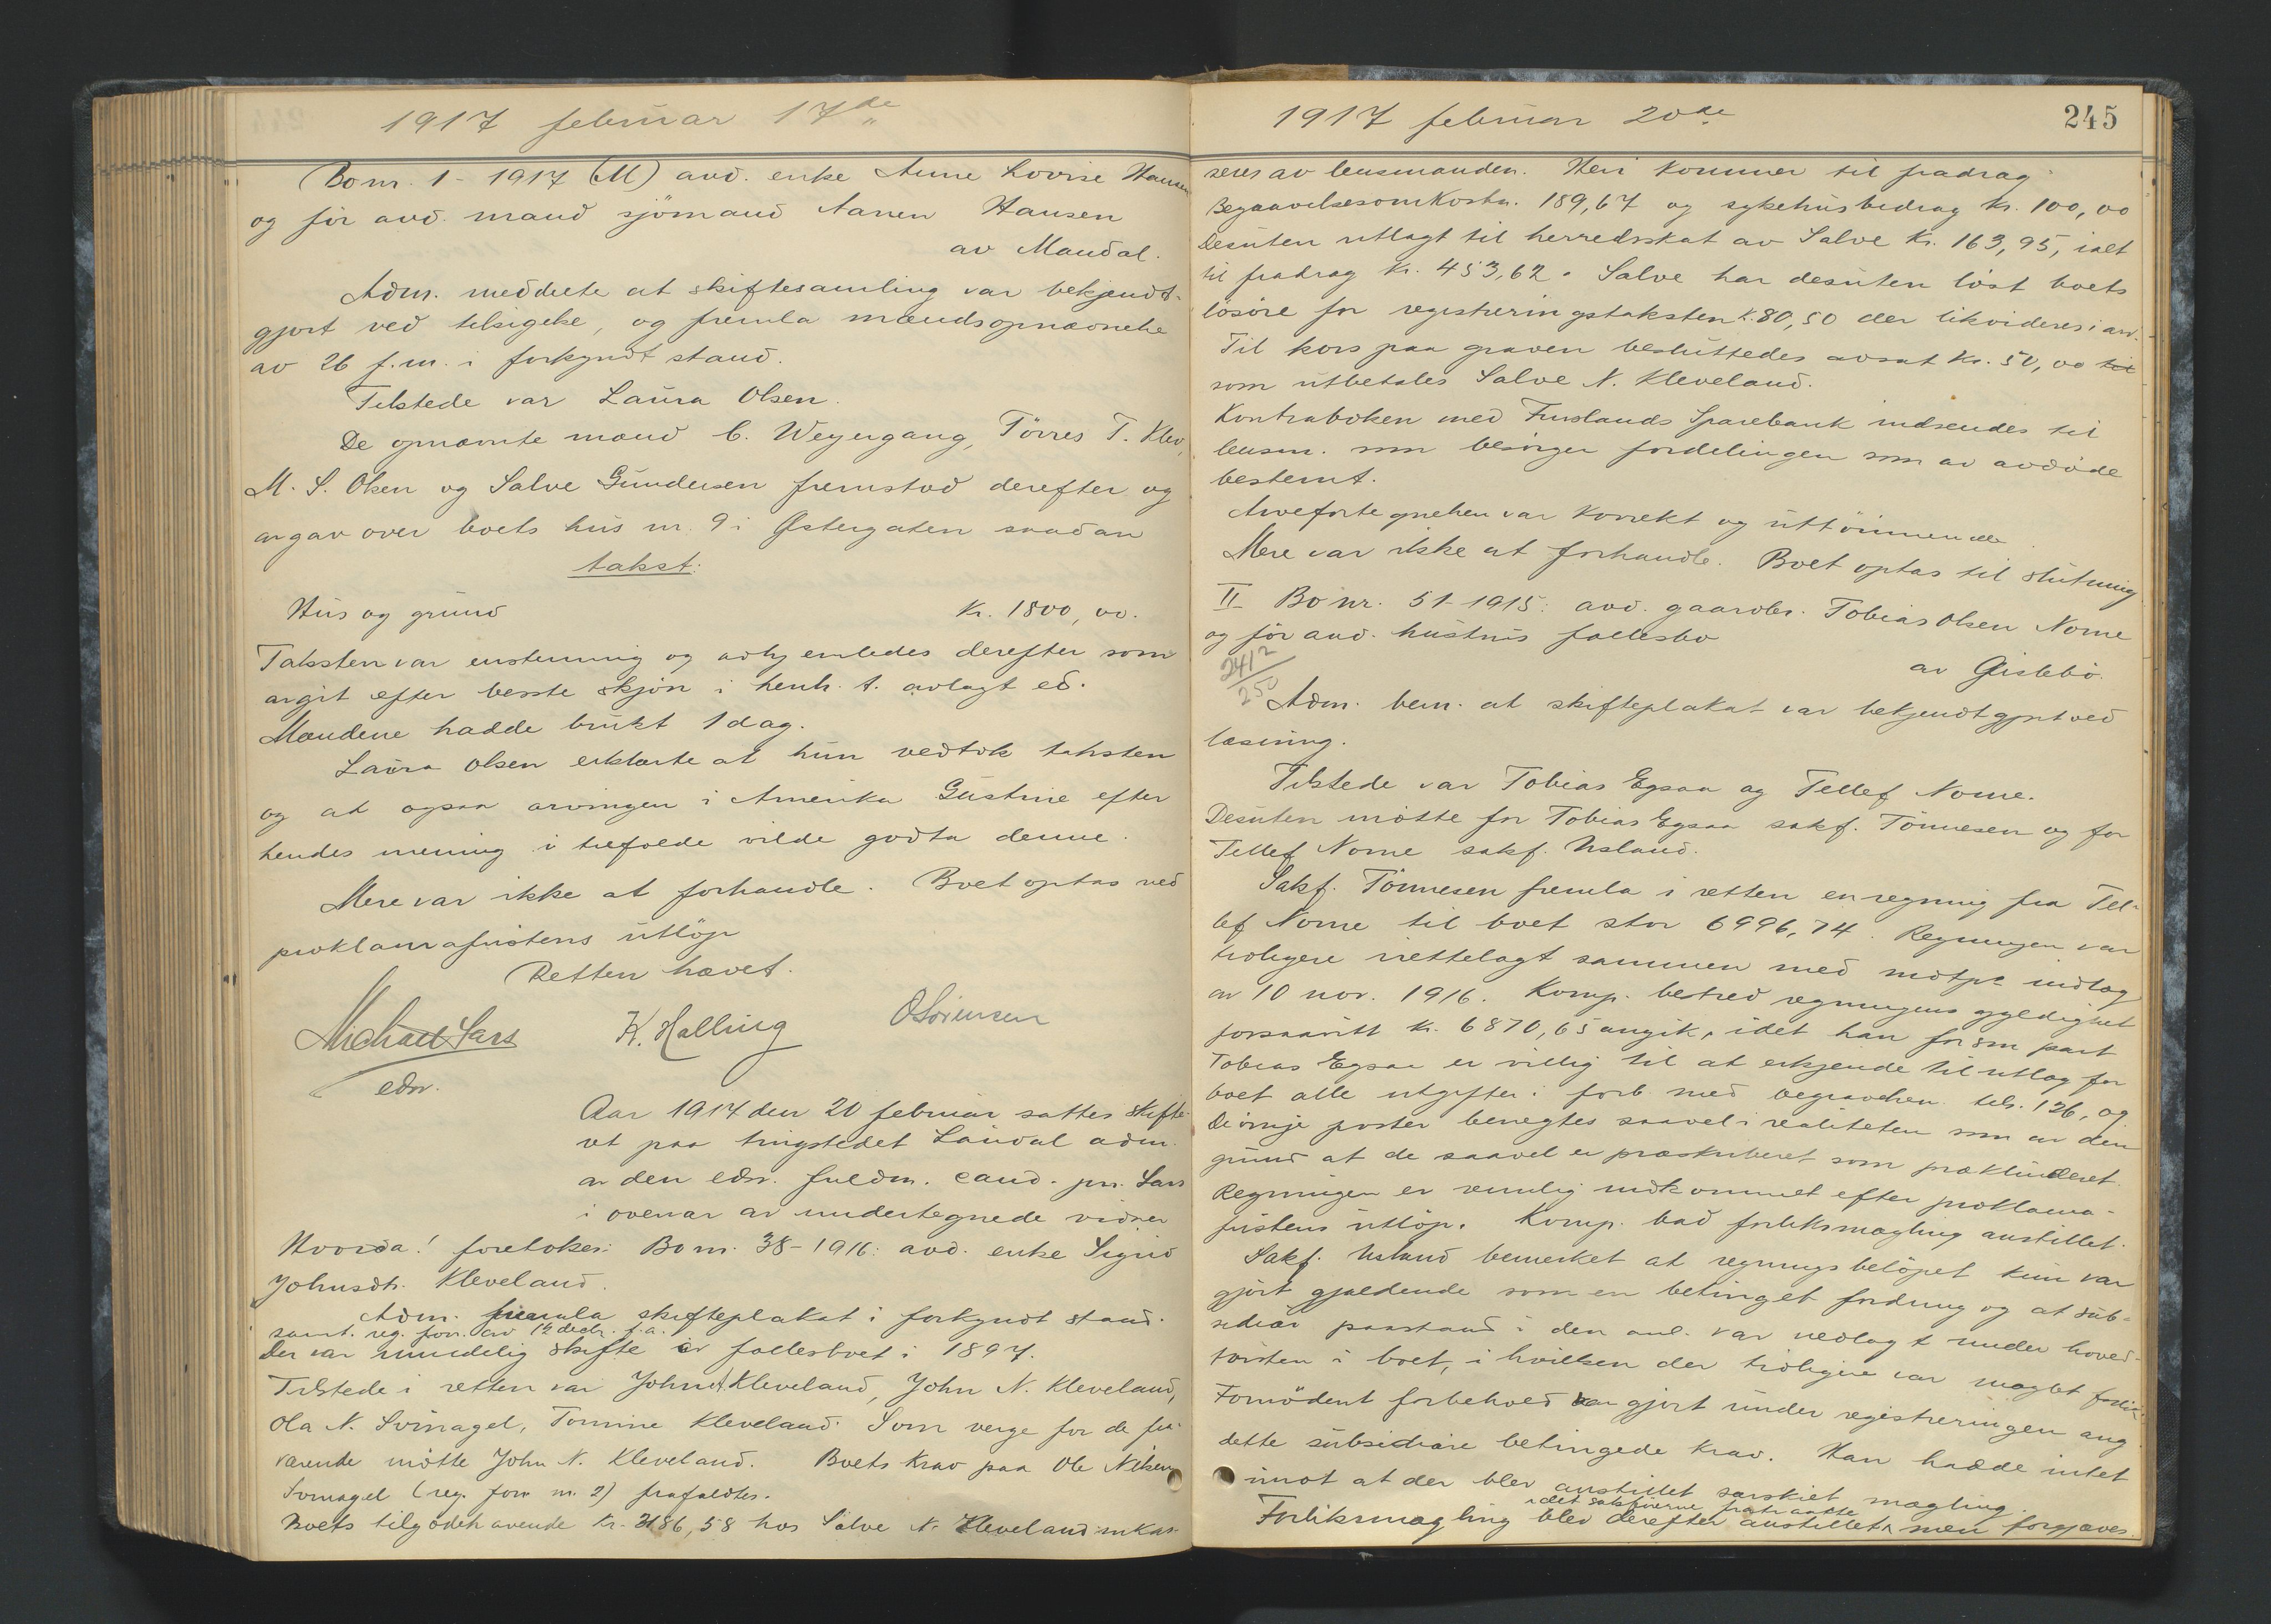 1917 februar 17de
Bo nr. 1 - 1917 (M) avd. enke Anne Lovise Hansen
og før avd. mand sjömand Aanen Hansen
av Mandal.
Adm. meddelte at skiftesamling var bekjendt-
gjort ved tilsigelse, og fremla mændsopnævnelse
av 26 f.m. i forkyndt stand.
Tilstede var Laura Olsen.
De opnævnte mænd C. Weyergang, Törres T. Klev,
M. S. Olsen og Salve Gundersen fremstod derefter og
avgav over boets hus nr. 9 i Østergaten saadan
takst:
Hus og grund Kr. 1800,00.
Taksten var enstemmig og avhjemledes derefter som
avgit efter besste skjön i henh. t. avlagt ed.
Mændene hadde brukt 1 dag.
Laura Olsen erklærte at hun vedtok taksten
og at ogsaa arvingen i Amerika Gustine efter
hendes mening i tilfælde vilde godta denne.
Mere var ikke at forhandle. Boet optas ved
proklamafristens utlöp
Retten hævet.
Michael Sars K. Halling O Sörensen
edsv.
Aar 1917 den 20 februar sattes skifte-
ret paa tingstedet Laudal adm.
av den edsv. fuldm. cand. jur. Sars
i overvær av undertegnede vidner
Hvorda! foretokes: Bo nr. 38-1916: avd. enke Sigrid
Johnsdtr. Kleveland.
Adm. fremla skifteplakat i forkyndt stand.
samt. reg. forr. av 12 decbr. f.a.
Der var mindelig skifte av fællesboet i 1897.
Tilstede i retten var Johne Kleveland, John N. Kleveland,
Ola N. Svinagel, Tomine Kleveland. Som verge for de fra-
værende mötte John N. Kleveland. Boets krav paa Ole Nilsen
Svinagel (reg. forr nr. 2) frafaldtes.
Boets tilgodehavende Kr. 3186,58 hos Salve N. Kleveland inkas-
1917 februar 20de
245
seres av lensmanden. Heri kommer til fradrag
Begravelsesomkostn. 189,67 og sykehusbidrag kr. 100,00
Desuten utlagt til herredsskat av Salve Kr. 163,95, ialt
til fradrag Kr. 453,62. Salve har desuten löst boets
lösöre for registreringstaksten K. 80,50 der likvideres i arv.
Til kors paa graven besluttedes avsat Kr. 50,00 til
som utbetales Salve N. Kleveland.
Kontraboken med Finslands Sparebank indsendes til
lensm. som besörger fordelingen som av avdöde
bestemt.
Arvefortegnelsen var korrekt og uttömmende
Mere var ikke at forhandle. Boet optas til slutning
II Bo nr. 51-1915: avd. gaardbr. Tobias Olsen Nome
og før avd. hustrus fællesbo
av Gislebö.
2412/250
Adm. bem. at skifteplakat var bekjendtgjort ved
læsning.
Tilstede var Tobias Egsaa og Tellef Nome.
Desuten mötte for Tobias Egsaa sakf. Tönnesen og for
Tellef Nome sakf. Usland.
Sakf. Tönnesen fremla i retten en regning fra Tel-
lef Nome til boet stor 6996,74. Regningen var
tidligere irettelagt sammen med motps indlæg
av 10 nov. 1916. Komp. bestred regningens gyldighet
forsaavitt kr. 6870,65 angik, idet han for sin part
Tobias Egsaa er villig til at erkjende til utlæg for
boet alle utgifter i forb med begravelsen tils. 126,09
De övrige poster benegtes saavel i realiteten som av den
grund at de saavel er præskriberet som prækluderet.
Regningen er nemlig indkommet efter proklama-
fristens utlöp. Komp. bad forliksmægling anstillet.
Sakf. Usland bemerket at regningsbelöpet kun var
gjort gjældende som en betinget fordring og at sub-
sidiær paastand i den anl. var nedlagt under hoved-
tvisten i boet, i hvilken der tidligere var mæglet forlik.
Fornödent forbehold var gjort under registreringen ang
dette subsidiære betingede krav. Han hadde intet
imot at der blev anstillet særskilt mægling.
idet sakförerne fratraadte
Forliksmægling blev derefter anstillet, men forgjæves.